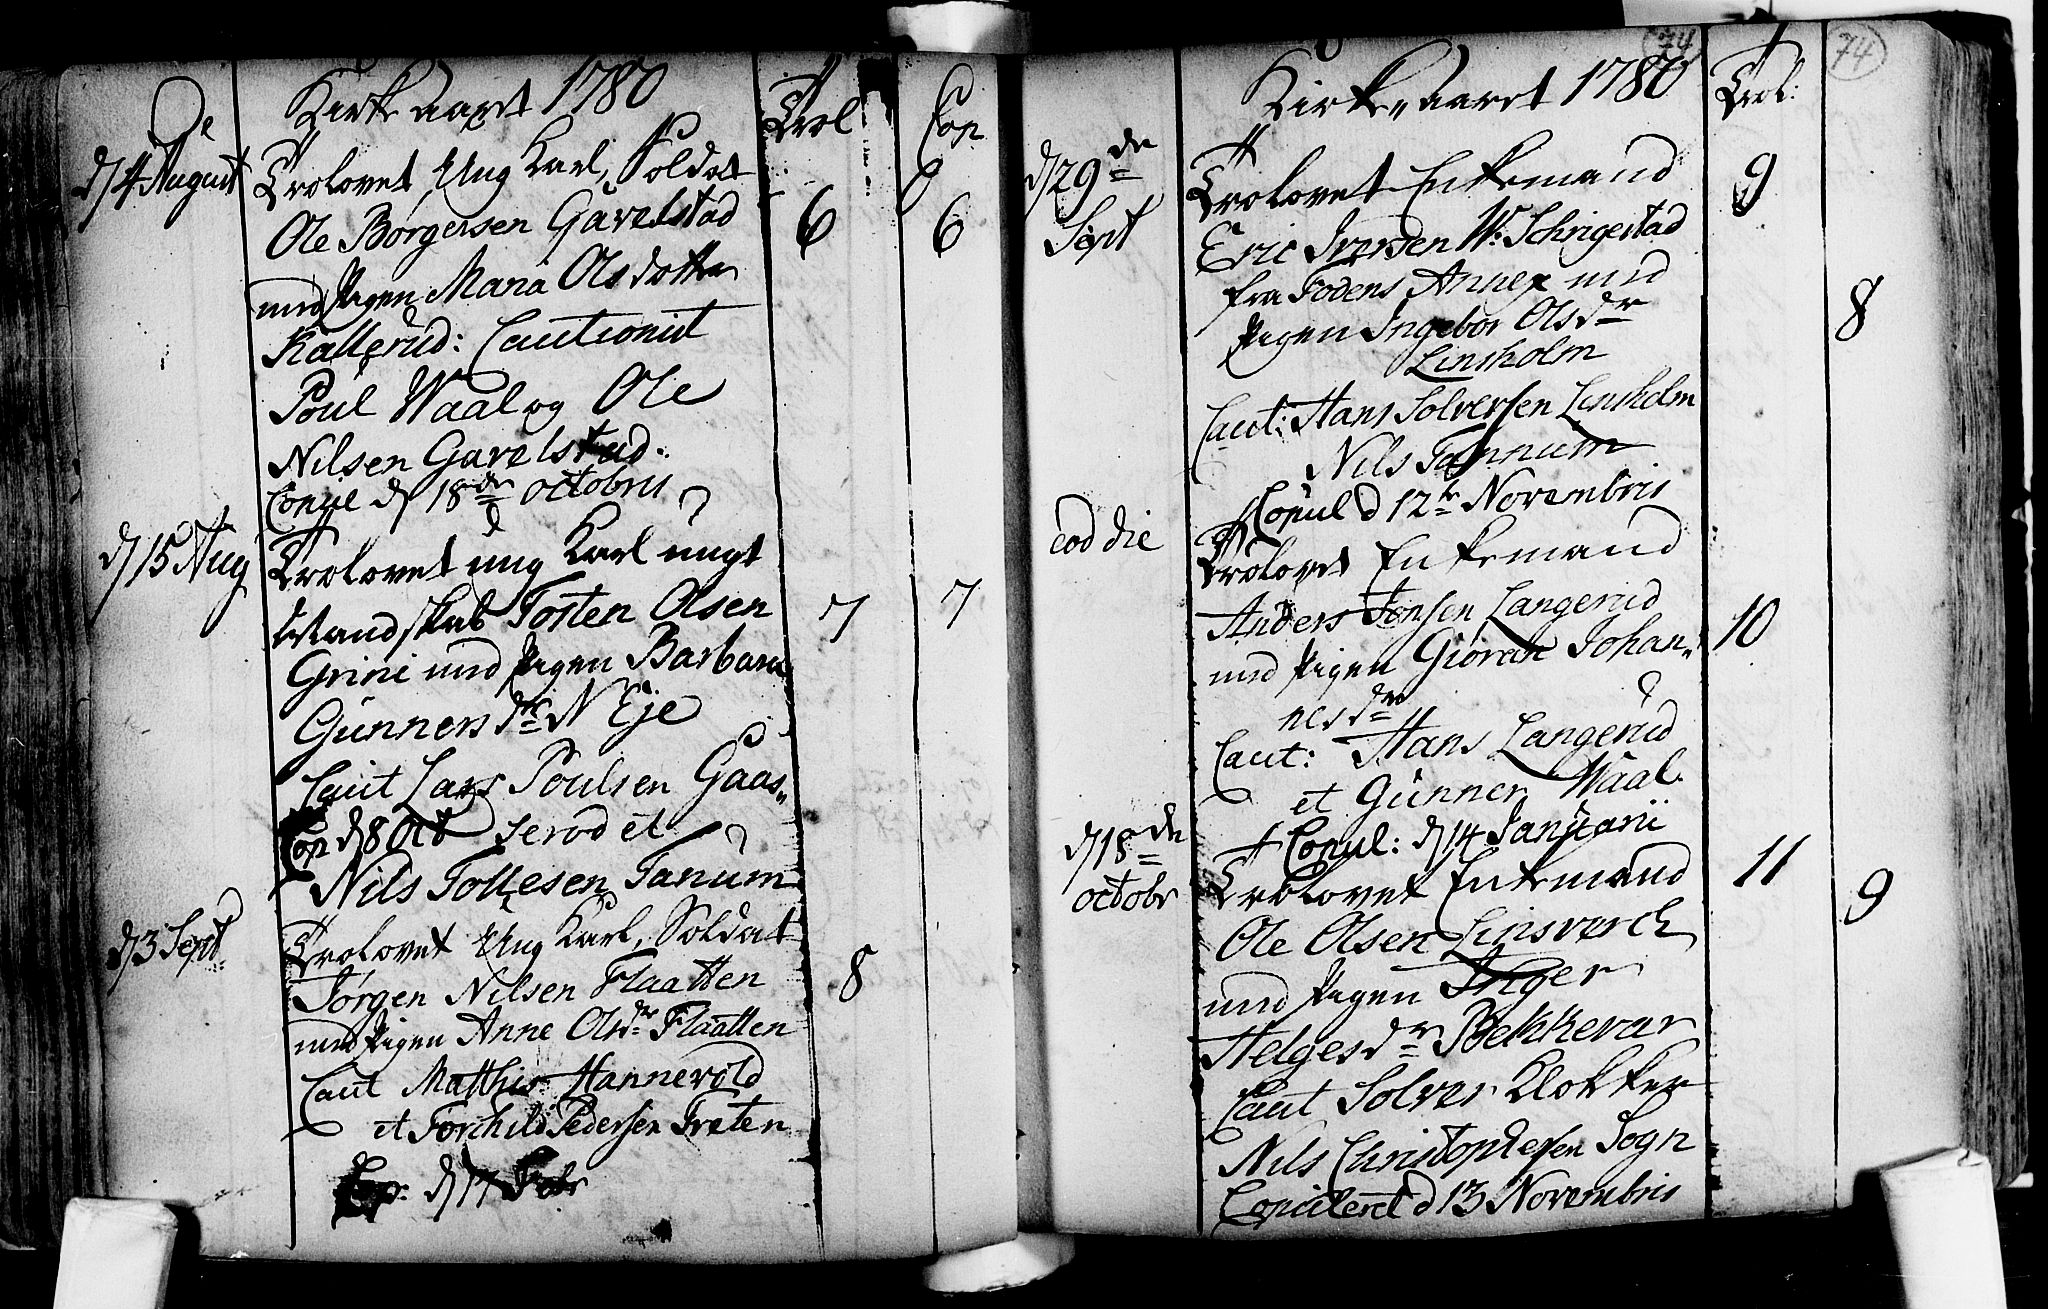 Kirke aaret 1780
Trol
Cop
d 4 August
Trolovet Ung Karl, Soldat
Ole Børgersen Gavelstad
6
6
med Pigen Maria Olsdotter
Kallerud: Cautionist
Poul Waal og Ole
Nilsen Gavelstad.
Copul d 18de octobris
d 15 Aug
Trolovet ung Karl ungt
Mandskab Tosten Olsen
7
7
Grini med Pigen Barbara
Gunnersdr N Eje
Caut Lars Poulsen Gaas„
Cop d 8 Oct serod et
Nils Tollesen Tanum
d 3 Sept
Trolovet Ung Karl, Soldat
Jørgen Nilsen Flaatten
8
med Pigen Anne Olsdr Flaatten
Caut Matthis Hannevold
et Torchild Pedersen Træten
Cop: d 17 Febr
74
74
Kirke„aaret 1780
Trol:
d 29de
Sept
Trolovet Enkemand
9
Eric Iversen W. Schrigestad
fra Fodens Annex med
8
Pigen Ingebor Olsdr
Linsholm
Caut: Hans Solversen Linsholm
Nils Tannum
Copul d 12te Novembris
eod die
Trolovet Enkemand
Anders Jonsen Langerud
10
med Pigen Giøran Johan„
nesdr
Caut: Hans Langerud
et Gunner Waal
Copul: d 14 Januarii
d 18de
octobr
Trolovet Enkemand
11
9
Ole Olsen Linsverch
med Pigen Inger
Helgesdr Bekkevar
Caut Solver Klokker
Nils Christophersen Sogn
Copulered d 13 Novembris